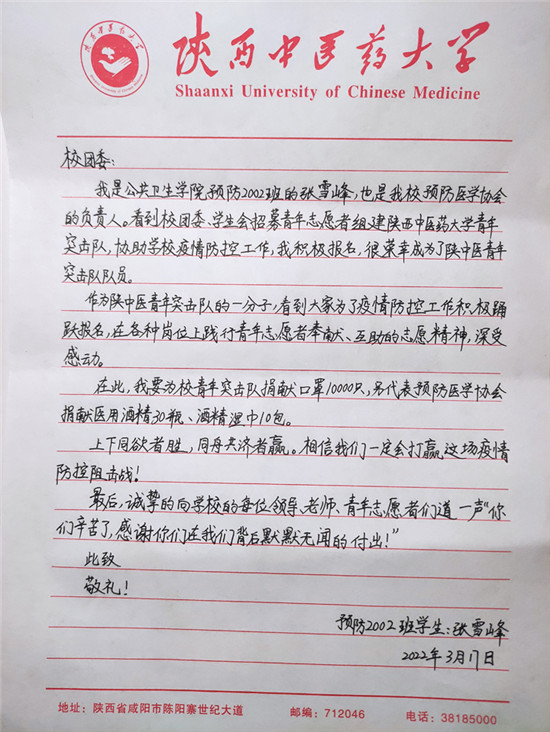 陕西中医药大学
Shaanxi University of Chinese Medicine
校团委:
我是公共卫生学院预防2002班的张雪峰,也是我校预防医学协会
的负责人。看到校团委、学生会招募青年志愿者组建陕西中医药大学青年
突击队,协助学校疫情防控工作,我积极报名,很荣幸成为了陕中医青年
突击队队员。
作为陕中医青年突击队的一分子,看到大家为了疫情防控工作积极踊
跃报名,在各种岗位上践行青年志愿者奉献、互助的志愿精神,深受
感动。
在此,我要为校青年突击队捐献口罩10000只,另代表预防医学协会
捐献医用酒精30瓶、酒精湿巾10包。
上下同欲者胜,同舟共济者赢。相信我们一定会打赢这场疫情
防控阻击战!
最后,诚挚的向学校的每位领导、老师、青年志愿者们道一声“你
们辛苦了,感谢你们在我们背后默默无闻的付出!”
此致
敬礼!
预防2002班学生:张雪峰
2022年3月17日
地址:陕西省咸阳市陈阳寨世纪大道 邮编:712046 电话:38185000